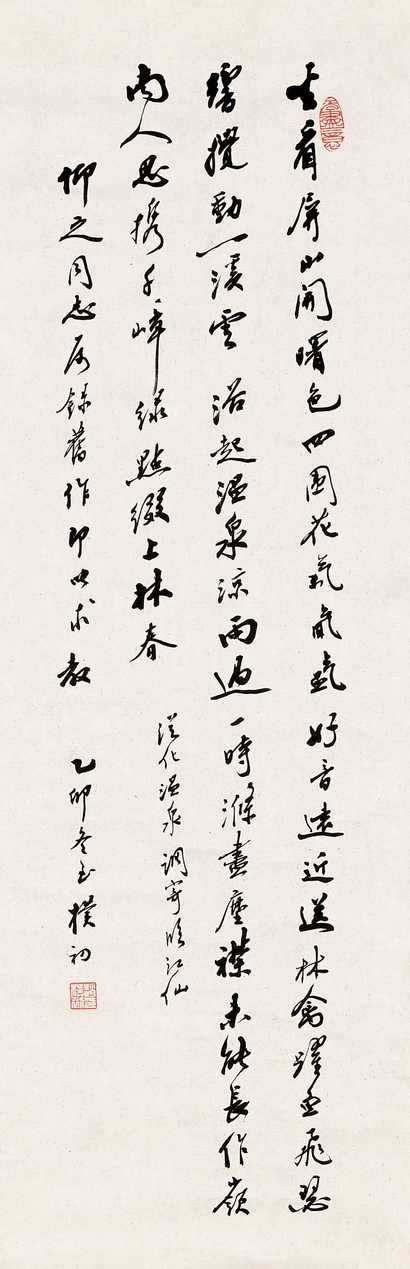 坐看屏山開曙色四圍花氣氤氲好音遠近送林禽躍空飛瀑
響攪動一溪雲浴起温泉涼雨過一時滌盡塵襟未能長作嶺
南人思攜千嶂緑點綴上林春
從化温泉調寄臨江仙
仰之同志屬録舊作即以求教
乙卯冬至樸初